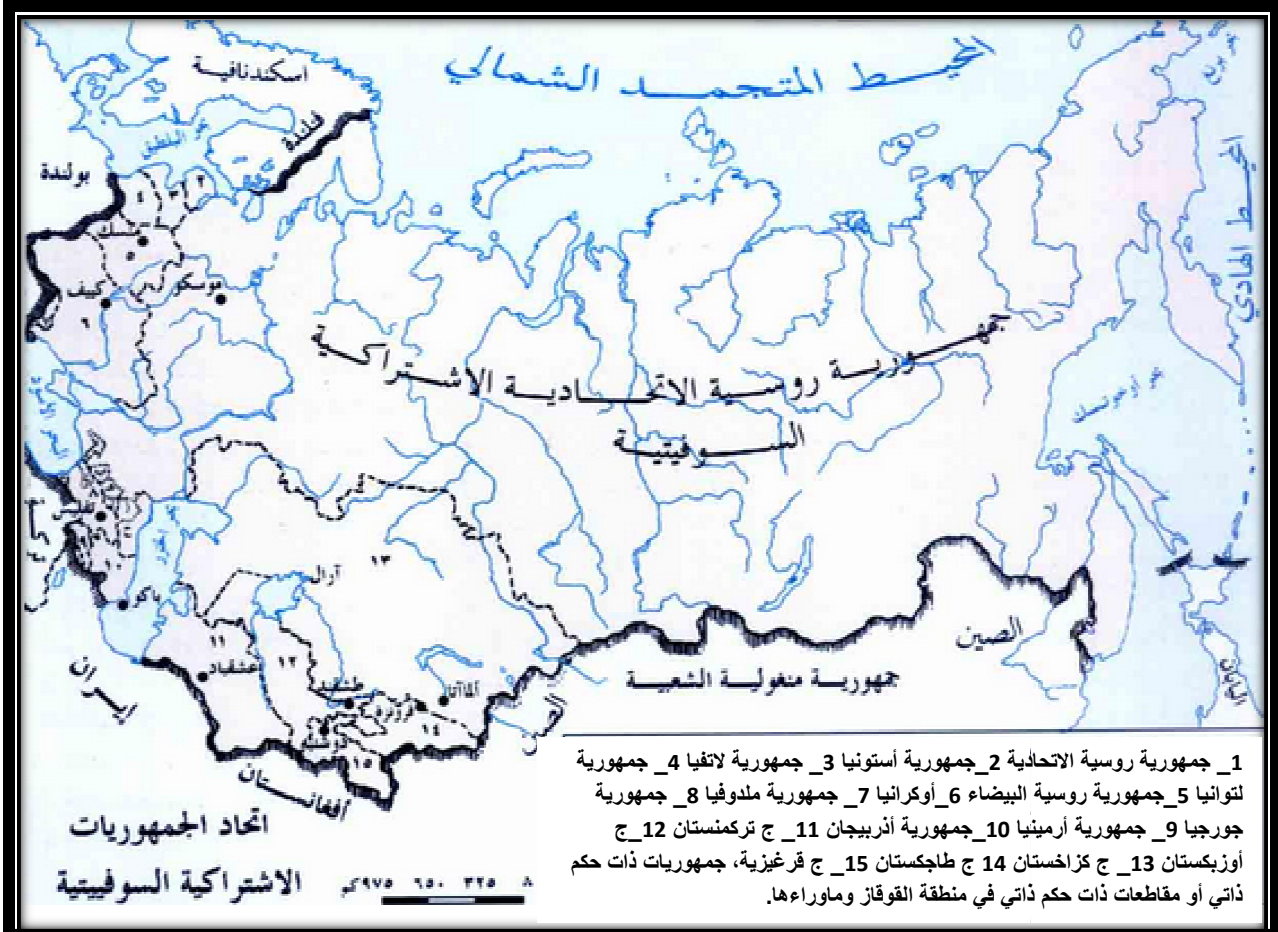 المحيط المتجمد الشمالي
اسكندنافية
فنلندة
بحر البلطيق
بولندة
٢
٣
٤
منسك
٥
موسكو
كييف
٦
المحيط الهادي
جمهورية روسية الاتحادية الاشتراكية
السوفيتية
بحر أوخوتسك
البحر الأسود
تفليس
بحر الخزر
باكو
آرال
١٣
١١
عشقباد
١٢
طشقند
فرونزة
ألماآتا
١٤
دوشنبه
١٥
إيران
أفغانستان
الصين
جمهورية منغولية الشعبية
الصين
اليابان
اتحاد الجمهوريات
الاشتراكية السوفييتية
٣٢٥ ٦٥٠ ٩٧٥كم
1_ جمهورية روسية الاتحادية 2_جمهورية أستونيا 3_ جمهورية لاتفيا 4_ جمهورية
لتوانيا 5_جمهورية روسية البيضاء 6_أوكرانيا 7_ جمهورية ملدوفيا 8_ جمهورية
جورجيا 9_ جمهورية أرمينيا 10_جمهورية أذربيجان 11_ ج تركمنستان 12_ج
أوزبكستان 13_ ج كزاخستان 14 ج طاجكستان 15_ ج قرغيزية، جمهوريات ذات حكم
ذاتي أو مقاطعات ذات حكم ذاتي في منطقة القوقاز وماوراءها.